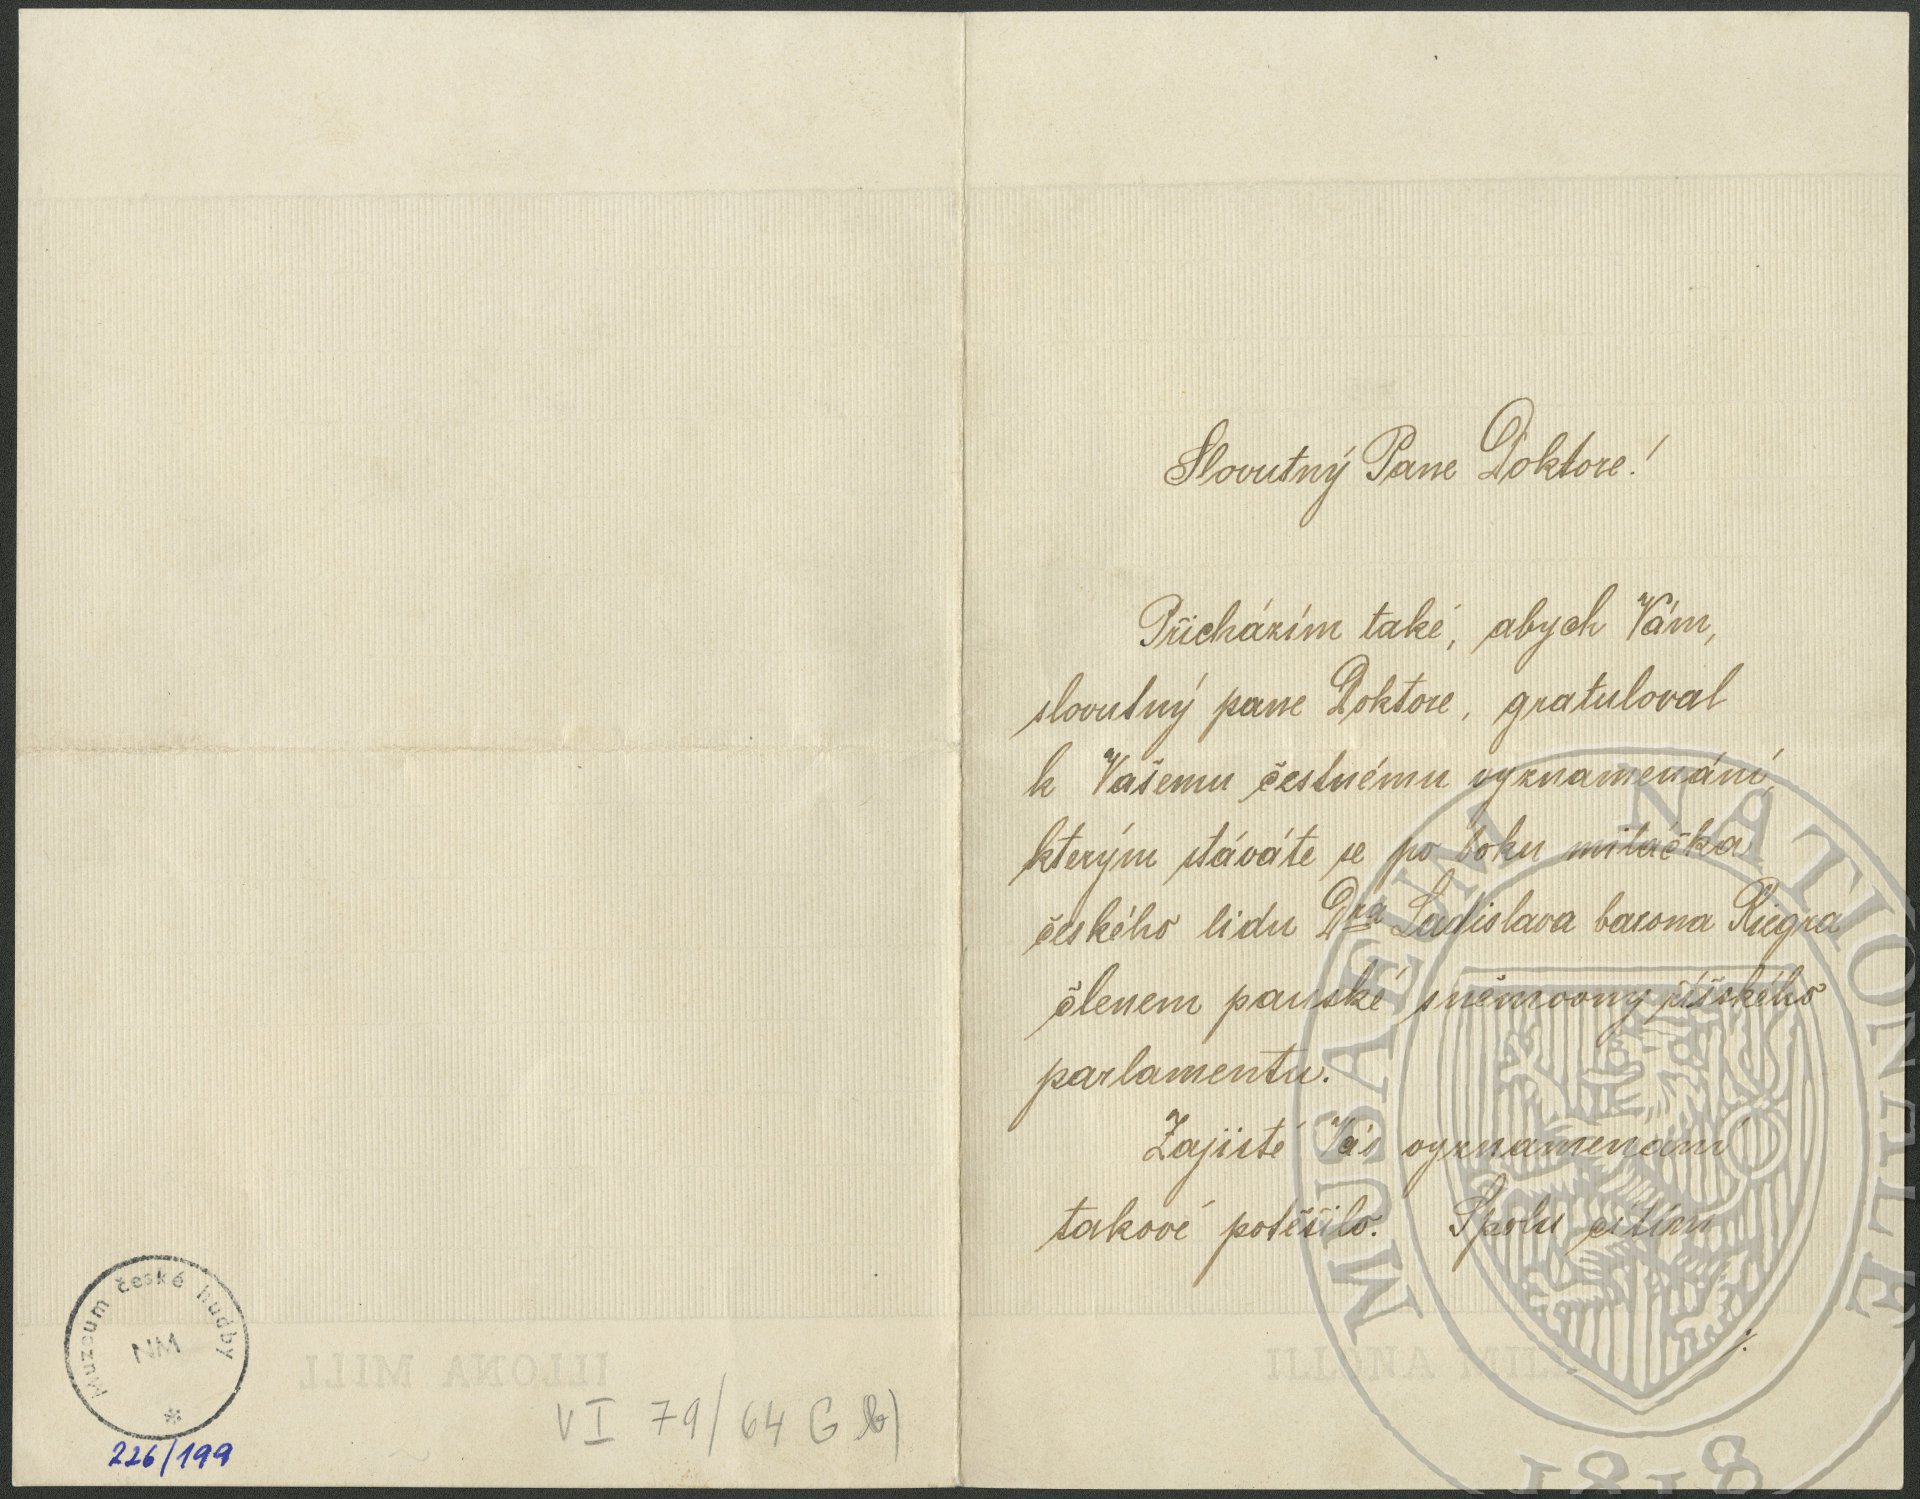 Slovutný Pane Doktore!
Přicházím také, abych Vám,
slovutný pane Doktore, gratuloval
k Vašemu čestnému vyznamenání,
kterým stáváte se po boku miláčka
českého lidu Dra Ladislava barona Riegra
členem panské sněmovny říšského
parlamentu.
Zajisté Vás vyznamenání
takové potěšilo. Spolu cítím
./.
Muzeum české hudby
NM
*
226/199
VI 79/64 G b)
ILLONA MILL
ILLONA MILL
MUSAEUM NATIONALE
1818